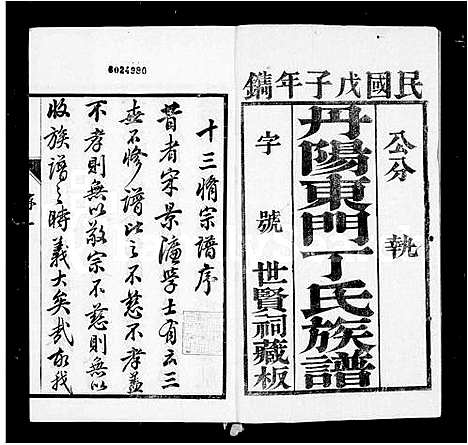 民國戊子年鐫
公分 執
丹陽東門丁氏族譜
字 號
世賢祠藏板
6024980
十三脩宗譜序
昔者宋景濂學士有云三
世不修譜比之不慈不孝蓋
不孝則無以敬宗不慈則無以
收族譜之時義大矣哉我
序 一